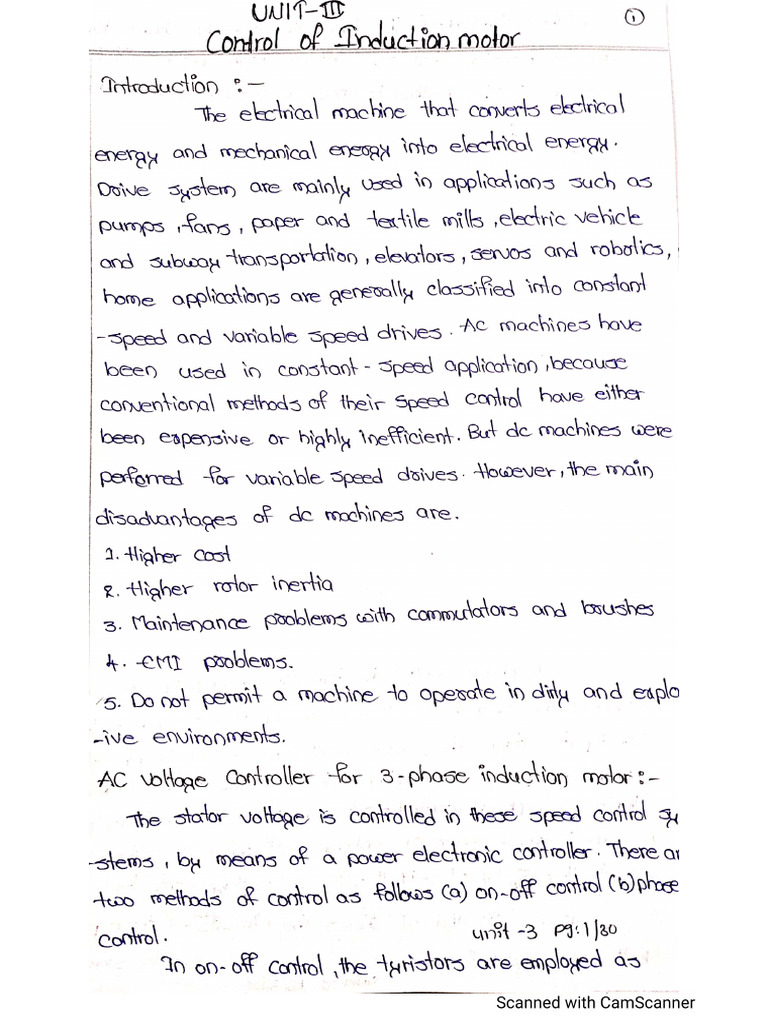 UNIT-III
①
Control of Induction motor
Introduction :-
The electrical machine that converts electrical
energy and mechanical energy into electrical energy.
Drive system are mainly used in applications such as
pumps, fans, paper and textile mills, electric vehicle
and subway transportation, elevators, servos and robotics,
home applications are generally classified into constant
-speed and variable speed drives. AC machines have
been used in constant-speed application, because
conventional methods of their speed control have either
been expensive or highly inefficient. But dc machines were
perferred for variable speed drives. However, the main
disadvantages of dc machines are.
1. Higher cost
2. Higher rotor inertia
3. Maintenance problems with commutators and brushes
4. EMI problems.
5. Do not permit a machine to operate in dirty and explo
-ive environments.
AC voltage controller for 3-phase induction motor:-
The stator voltage is controlled in these speed control sy
-stems, by means of a power electronic controller. There ar
two methods of control as follows (a) on-off control (b) phase
control.
unit -3 pg:1/30
In on-off control, the tyristors are employed as
Scanned with CamScanner